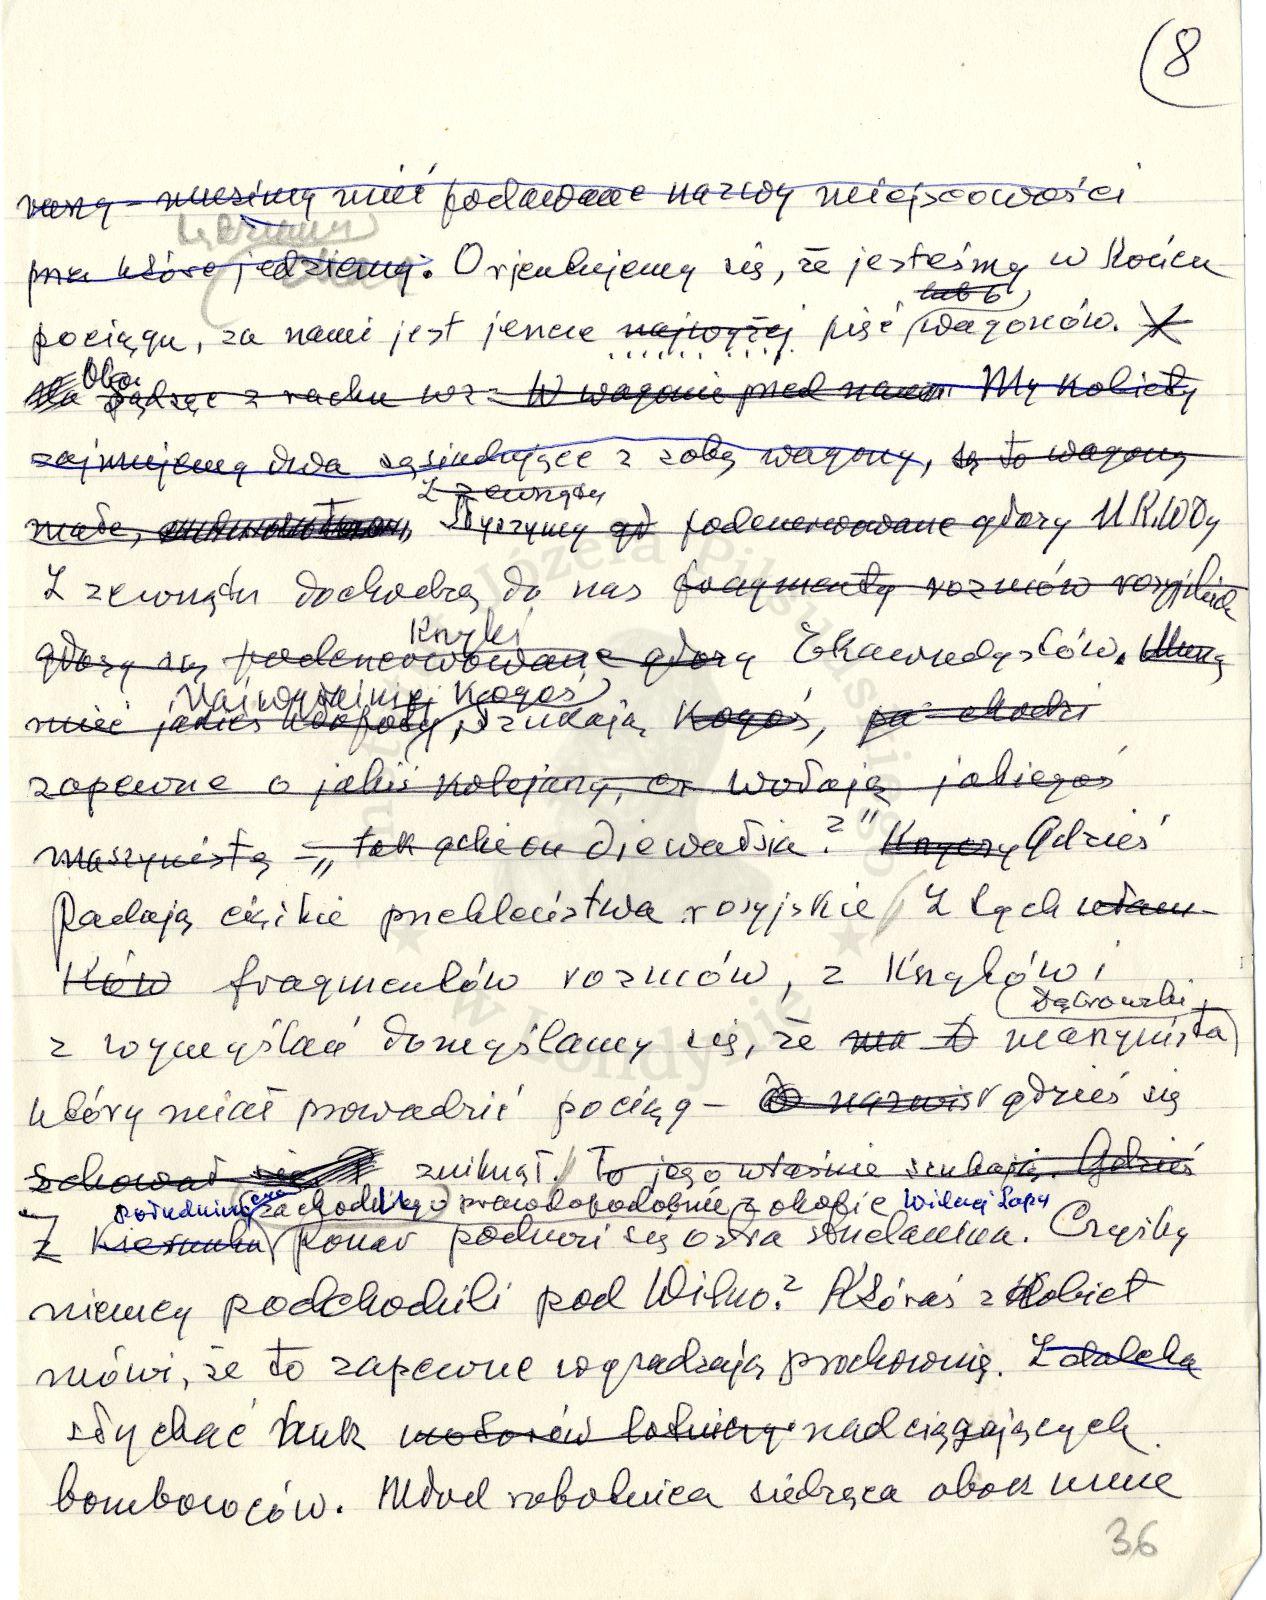 (8
muszą – musimy mieć podawane nazwy miejscowości
przez które jedziemy. Orjentujemy się, że jesteśmy w końcu
lub 6
pociągu, za nami jest jeszcze najwyżej pięć wagonów.
Obo
sądząc z ruchu W wagonie przed nami My kobiety
zajmujemy dwa sąsiadujące z sobą wagony, są to wagony
Z zewnątrz
małe, Słyszymy podenerwowane głosy NKWDy
Z zewnątrz dochodzą do nas fragmenty rozmów rosyjskich
Krzyki
głosy są podenerwowane głosy Enkawedystów.
Najwyraźniej kogoś
mieć jakieś kłopoty, szukają kogoś, chodzi
zapewne o jakiś kolejarzy, wołają jakiegoś
maszynistą – „tak gdie on diewałsia?" Krzyczą Gdzieś
Padają ciężkie przekleństwa rosyjskie Z tych ułam-
ków fragmentów rozmów, z krzyków i
Dąbrowski,
z wymyślań domyślamy się, że maszynista
który miał prowadzić pociąg – gdzieś się
schował się zniknął. To jego właśnie szukają. Gdzieś
południowo zachodniego prawdopodobnie z okolic Wilczej Łapy
Z kierunku Ponar podnosi się ostra strzelanina. Czyżby
niemcy podchodzili pod Wilno? Któraś z kobiet
mówi, że to zapewne wysadzają prochownię. Z daleka
słychać huk motorów lotniczy nadciągających
bombowców. Młod robotnica siedząca obok mnie
36
w Londynie